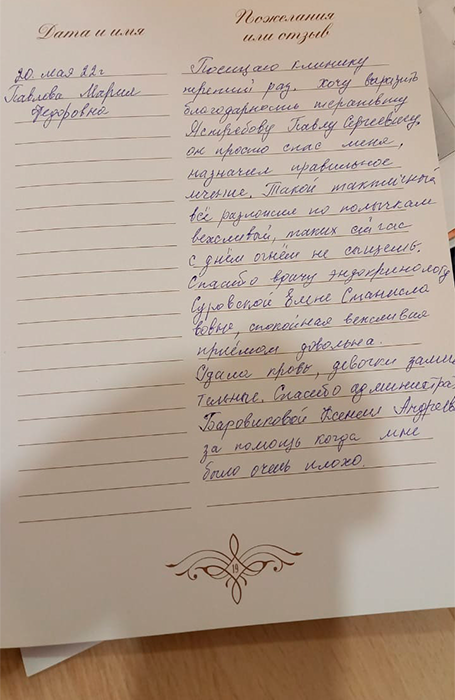 Дата и имя
Пожелания
или отзыв
20 мая 22г
Павлова Мария
Федоровна
Посещаю клинику
третий раз. Хочу выразить
благодарность терапевту
Ястребову Павлу Сергеевичу,
он просто спас меня,
назначил правильное
лечение. Такой тактичный
всё разложил по полочкам
вежливый, таких сейчас
с днём огнём не сыщешь.
Спасибо врачу эндокринологу
Суровской Елене Станисла
вовне, спокойная вежливая
приёмом довольна.
Сдала кровь, девочки замеча
тельные. Спасибо администра
Боровиковой Ксении Андреев
за помощь когда мне
было очень плохо.
19